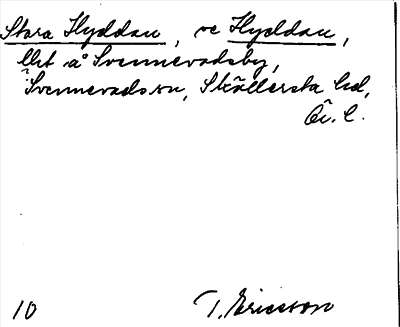 Stora Hyddan, se Hyddan,
llit å Svennevadsby,
Svennevads sn, Sköllersta hd,
Ör. l.
10 T. Ericsson